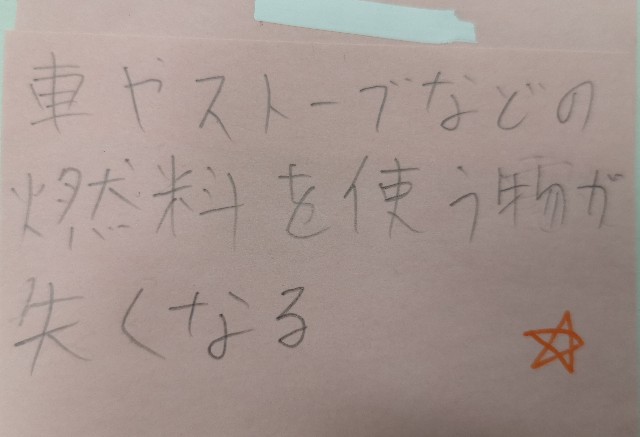 車やストーブなどの
燃料を使う物が
失くなる